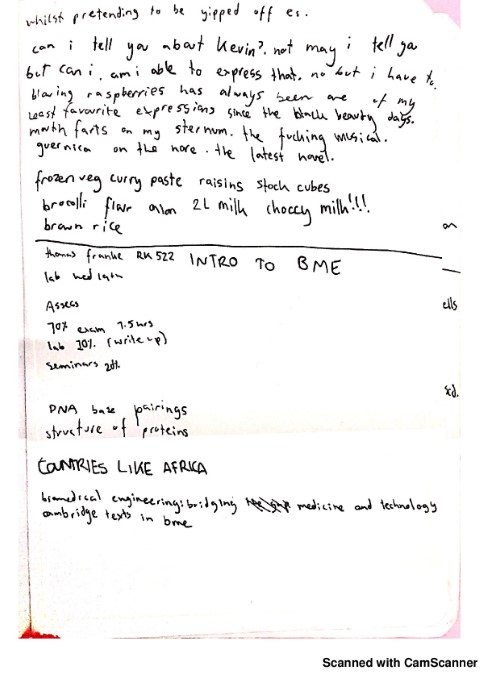 whilst pretending to be yipped off es.
can i tell you about Kevin?. not may i tell ya
but can i. am i able to express that. no but i have to.
blowing raspberries has always been one of my
least favourite expressions since the black beauty days.
mouth farts on my sternum. the fucking musical.
guernica on the nore. the latest novel.
frozen veg curry paste raisins stock cubes
brocolli flour onion 2L milk choccy milk!!!
brown rice
on
thomas franke RK 522 INTRO TO BME
lab wed 19th
Assess
ells
70% exam 1.5hrs
lab 10% (write up)
seminars 20%
xd.
DNA base pairings
structure of proteins
COUNTRIES LIKE AFRICA
biomedical engineering: bridging medicine and technology
cambridge texts in bme
Scanned with CamScanner